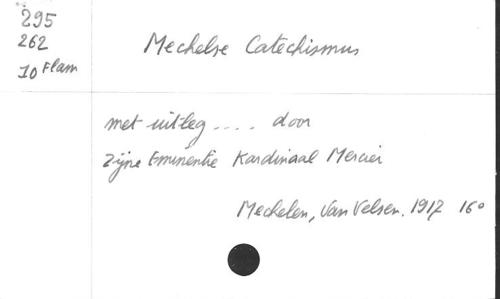 295
262
10 Flam
Mechelse Catechismus
met uitleg .... door
Zijne Eminentie Kardinaal Mercier
Mechelen, Van Velsen. 1917 16°